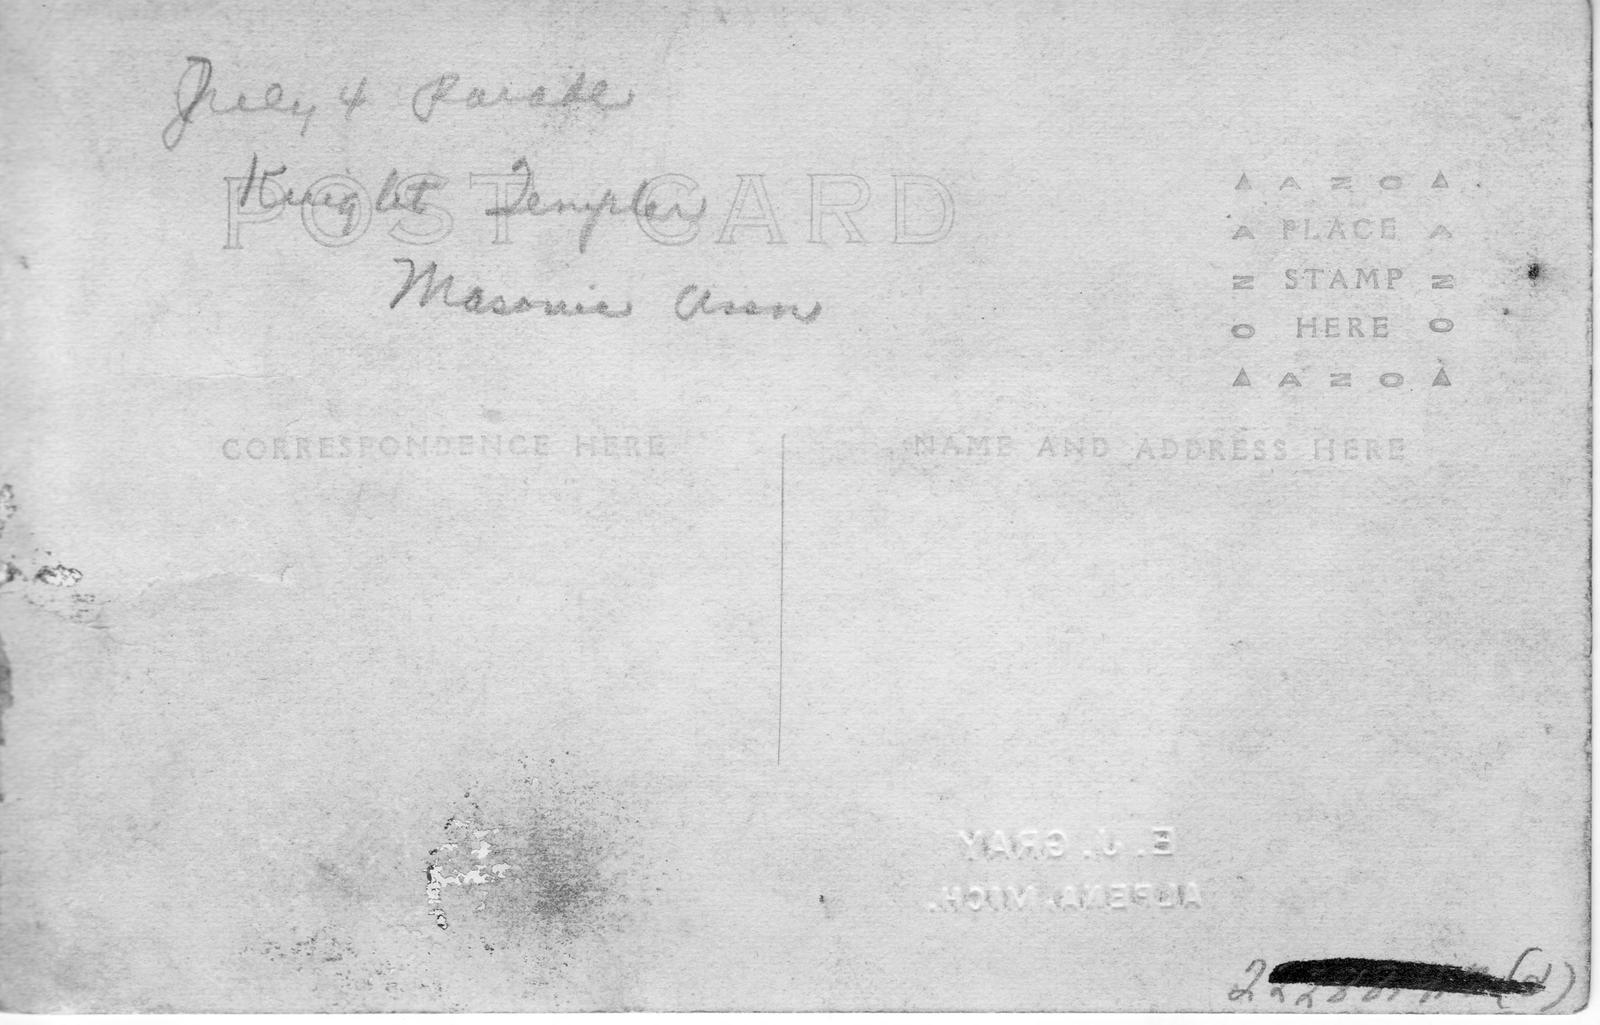 July 4 Parade
POST CARD
Knight Templer
Masonic Assn
AZO
A PLACE A
N STAMP N
O HERE O
AZO
CORRESPONDENCE HERE
NAME AND ADDRESS HERE
E. J. GRAY
ALPENA, MICH.